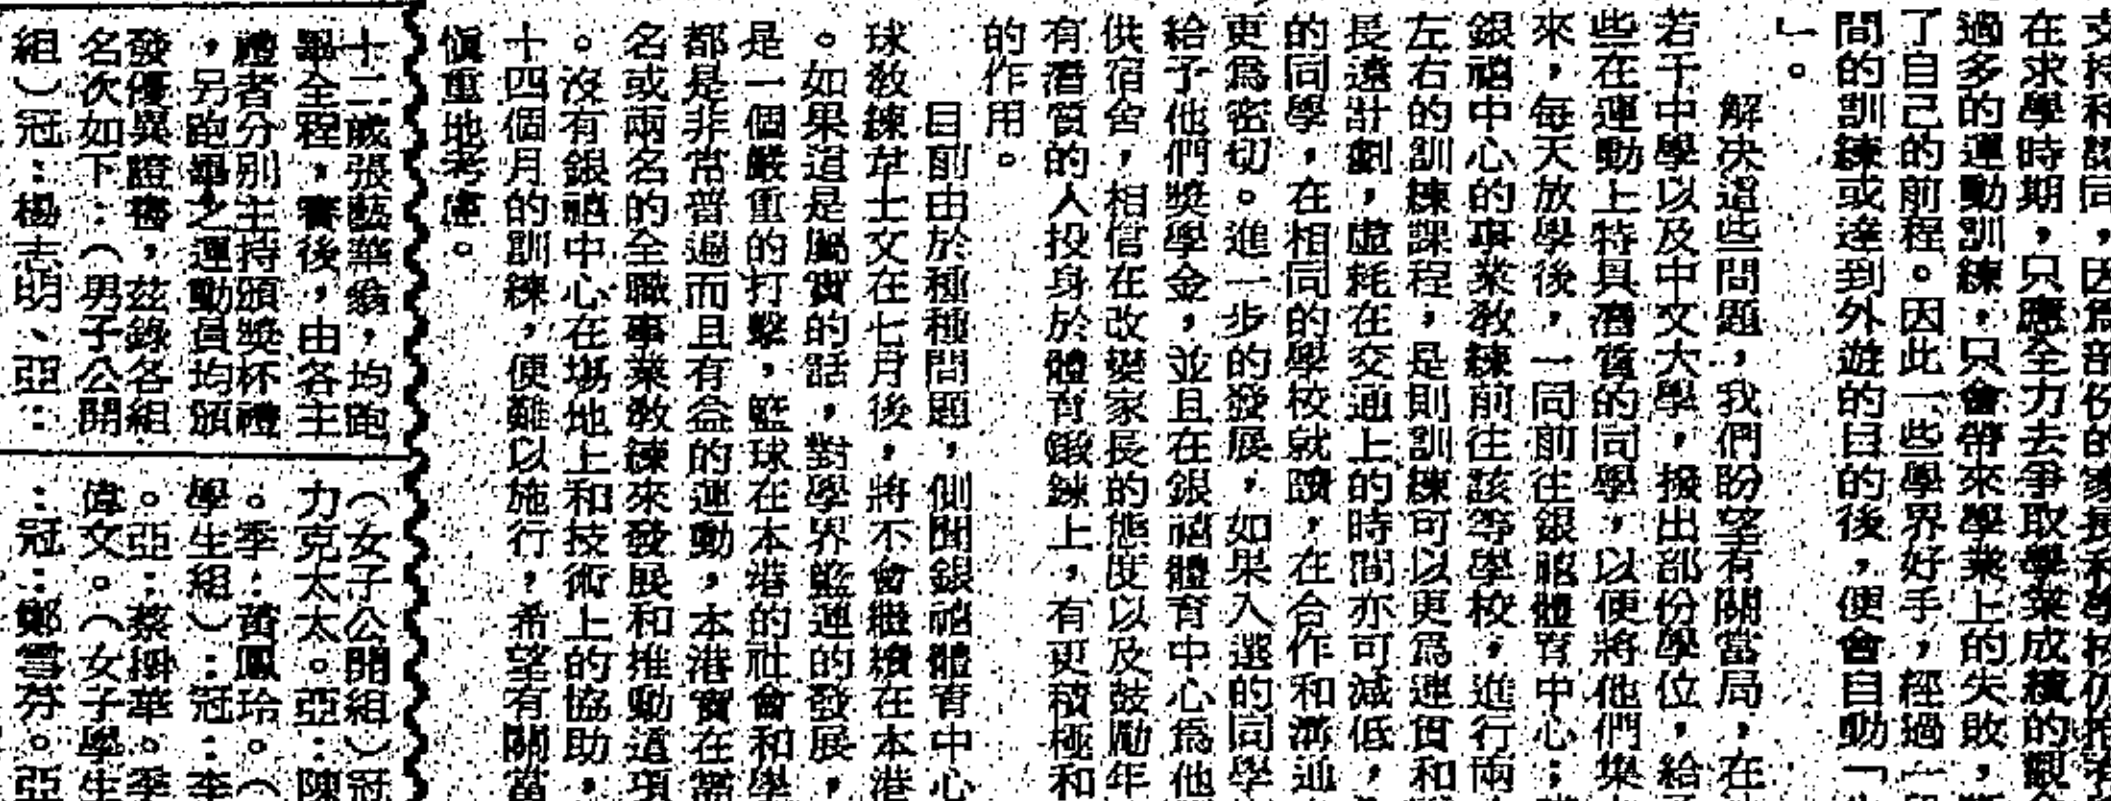 支持和認同，因爲部份的家長和學校仍抱着
在求學時期，只應全力去爭取學業成績的觀
過多的運動訓練，只會帶來學業上的失敗，
了自己的前程。因此一些學界好手，經過一
間的訓練或達到外遊的目的後，便會自動「
」。
解決這些問題，我們盼望有關當局，在
若干中學以及中文大學，撥出部份學位，給
些在運動上特具潛質的同學，以便將他們集
來，每天放學後，一同前往銀禧體育中心；
銀禧中心的專業教練前往該等學校，進行兩
左右的訓練課程，是則訓練可以更爲連貫和
長遠計劃，虛耗在交通上的時間亦可減低，
的同學，在相同的學校就讀，在合作和溝通
更爲密切。進一步的發展，如果入選的同學
給予他們獎學金，並且在銀禧體育中心爲他
供宿舍，相信在改變家長的態度以及鼓勵年
有潛質的人投身於體育鍛鍊上，有更積極和
的作用。
目前由於種種問題，側聞銀禧體育中心
球教練韋士文在七月後，將不會繼續在本港
。如果這是屬實的話，對學界籃運的發展，
是一個嚴重的打擊，籃球在本港的社會和學
都是非常普遍而且有益的運動，本港實在需
名或兩名的全職事業教練來發展和推動這項
。沒有銀禧中心在場地上和技術上的協助，
十四個月的訓練，便難以施行，希望有關當
愼重地考慮。
十二歲張藝華翁，均跑
畢全程，賽後，由各主
禮者分別主持頒獎杯禮
，另跑畢之運動員均頒
發優異證書，茲錄各組
名次如下：（男子公開
組）冠：楊志明、亞：
（女子公開組）冠
力克太太。亞：陳
。季：黃鳳玲。（
學生組）：冠：李
。亞：蔡
華。季
偉文。（女子學生
：冠：鄭雪芬。亞